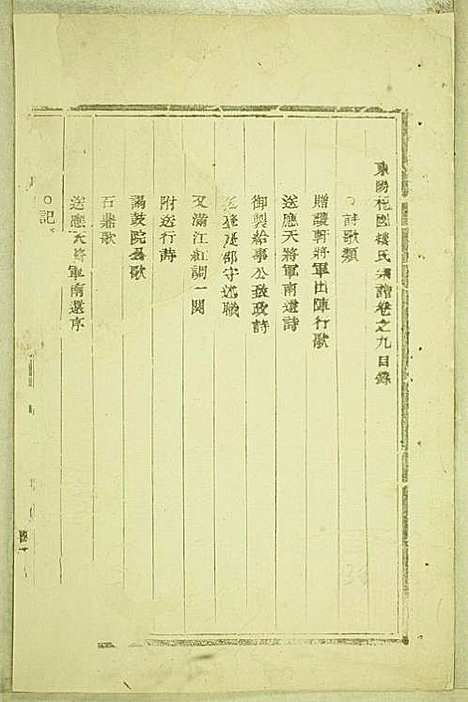 東陽杞國樓氏宗譜卷之九目錄
○詩歌類
贈護朝將軍出陣行歌
送應天將軍南還詩
御製給事公致政詩
郡守述職
又滿江紅調一闋
附送行詩
謁鼓院歌
石鼎歌
送應天將軍南還序
○記